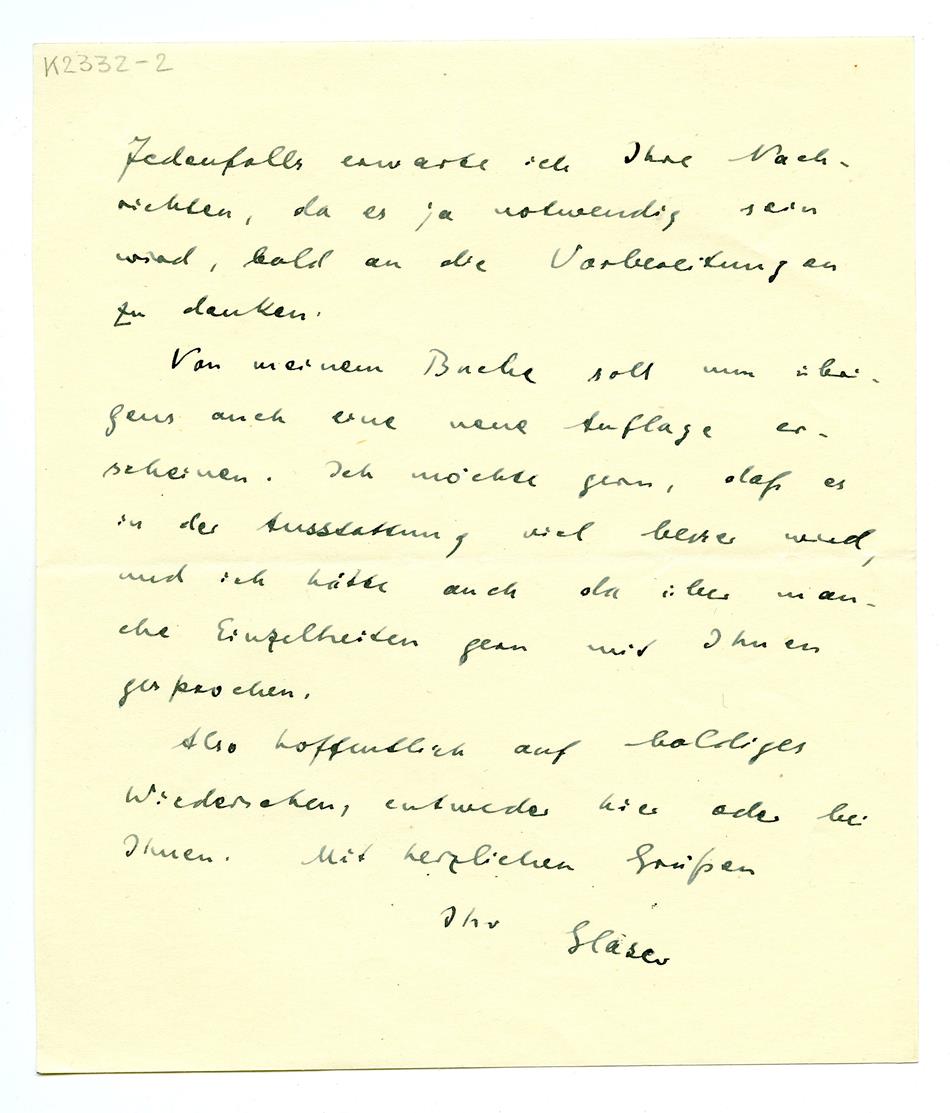 K2332-2
Jedenfalls erwarte ich Ihre Nach-
richten, da es ja notwendig sein
wird, bald an die Vorbereitungen
zu denken.
Von meinem Buche soll nun übri-
gens auch eine neue Auflage er-
scheinen. Ich möchte gern, daß es
in der Ausstattung viel besser wird,
und ich hätte auch da über man-
che Einzelheiten gern mit Ihnen
gesprochen.
Also hoffentlich auf baldiges
Wiedersehen, entweder hier oder bei
Ihnen. Mit herzlichen Grüßen
Ihr Glaser